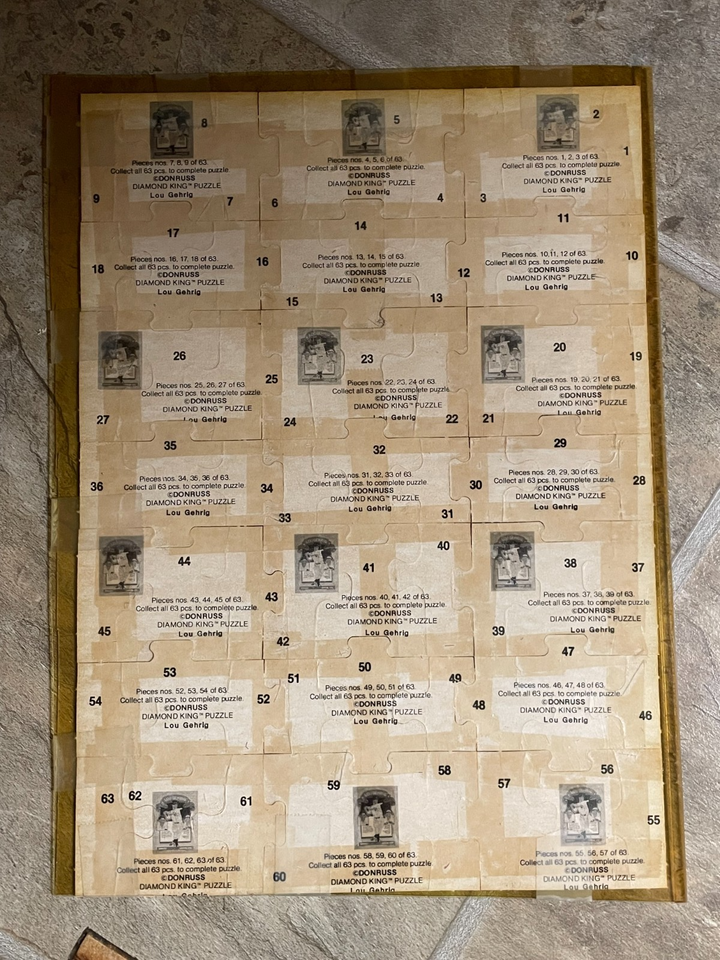 8
Pieces nos. 7, 8, 9 of 63.
Collect all 63 pcs. to complete puzzle.
©DONRUSS
DIAMOND KING™ PUZZLE
Lou Gehrig
9
7
5
Pieces nos. 4, 5, 6 of 63.
Collect all 63 pcs. to complete puzzle.
©DONRUSS
DIAMOND KING™ PUZZLE
Lou Gehrig
6
4
2
1
Pieces nos. 1, 2, 3 of 63.
Collect all 63 pcs. to complete puzzle.
©DONRUSS
DIAMOND KING™ PUZZLE
Lou Gehrig
3
17
18
Pieces nos. 16, 17, 18 of 63.
Collect all 63 pcs. to complete puzzle.
©DONRUSS
DIAMOND KING™ PUZZLE
Lou Gehrig
16
14
Pieces nos. 13, 14, 15 of 63.
Collect all 63 pcs. to complete puzzle.
©DONRUSS
DIAMOND KING™ PUZZLE
Lou Gehrig
15
13
11
12
10
Pieces nos. 10,11, 12 of 63.
Collect all 63 pcs. to complete puzzle.
©DONRUSS
DIAMOND KING™ PUZZLE
Lou Gehrig
26
25
Pieces nos. 25, 26, 27 of 63.
Collect all 63 pcs. to complete puzzle.
©DONRUSS
DIAMOND KING™ PUZZLE
Lou Gehrig
27
23
Pieces nos. 22, 23, 24 of 63.
Collect all 63 pcs. to complete puzzle.
©DONRUSS
DIAMOND KING™ PUZZLE
Lou Gehrig
24
22
20
19
Pieces nos. 19, 20, 21 of 63.
Collect all 63 pcs. to complete puzzle.
©DONRUSS
DIAMOND KING™ PUZZLE
Lou Gehrig
21
35
36
Pieces nos. 34, 35, 36 of 63.
Collect all 63 pcs. to complete puzzle.
©DONRUSS
DIAMOND KING™ PUZZLE
Lou Gehrig
34
32
Pieces nos. 31, 32, 33 of 63.
Collect all 63 pcs. to complete puzzle.
©DONRUSS
DIAMOND KING™ PUZZLE
Lou Gehrig
33
31
29
30
28
Pieces nos. 28, 29, 30 of 63.
Collect all 63 pcs. to complete puzzle.
©DONRUSS
DIAMOND KING™ PUZZLE
Lou Gehrig
44
43
Pieces nos. 43, 44, 45 of 63.
Collect all 63 pcs. to complete puzzle.
©DONRUSS
DIAMOND KING™ PUZZLE
Lou Gehrig
45
40
41
Pieces nos. 40, 41, 42 of 63.
Collect all 63 pcs. to complete puzzle.
©DONRUSS
DIAMOND KING™ PUZZLE
Lou Gehrig
42
38
37
Pieces nos. 37, 38, 39 of 63.
Collect all 63 pcs. to complete puzzle.
©DONRUSS
DIAMOND KING™ PUZZLE
Lou Gehrig
39
53
54
Pieces nos. 52, 53, 54 of 63.
Collect all 63 pcs. to complete puzzle.
©DONRUSS
DIAMOND KING™ PUZZLE
Lou Gehrig
52
50
51
49
Pieces nos. 49, 50, 51 of 63.
Collect all 63 pcs. to complete puzzle.
©DONRUSS
DIAMOND KING™ PUZZLE
Lou Gehrig
47
48
46
Pieces nos. 46, 47, 48 of 63.
Collect all 63 pcs. to complete puzzle.
©DONRUSS
DIAMOND KING™ PUZZLE
Lou Gehrig
63
62
61
Pieces nos. 61, 62, 63 of 63.
Collect all 63 pcs. to complete puzzle.
©DONRUSS
DIAMOND KING™ PUZZLE
Lou Gehrig
58
59
Pieces nos. 58, 59, 60 of 63.
Collect all 63 pcs. to complete puzzle.
©DONRUSS
DIAMOND KING™ PUZZLE
Lou Gehrig
60
56
57
55
Pieces nos. 55, 56, 57 of 63.
Collect all 63 pcs. to complete puzzle.
©DONRUSS
DIAMOND KING™ PUZZLE
Lou Gehrig